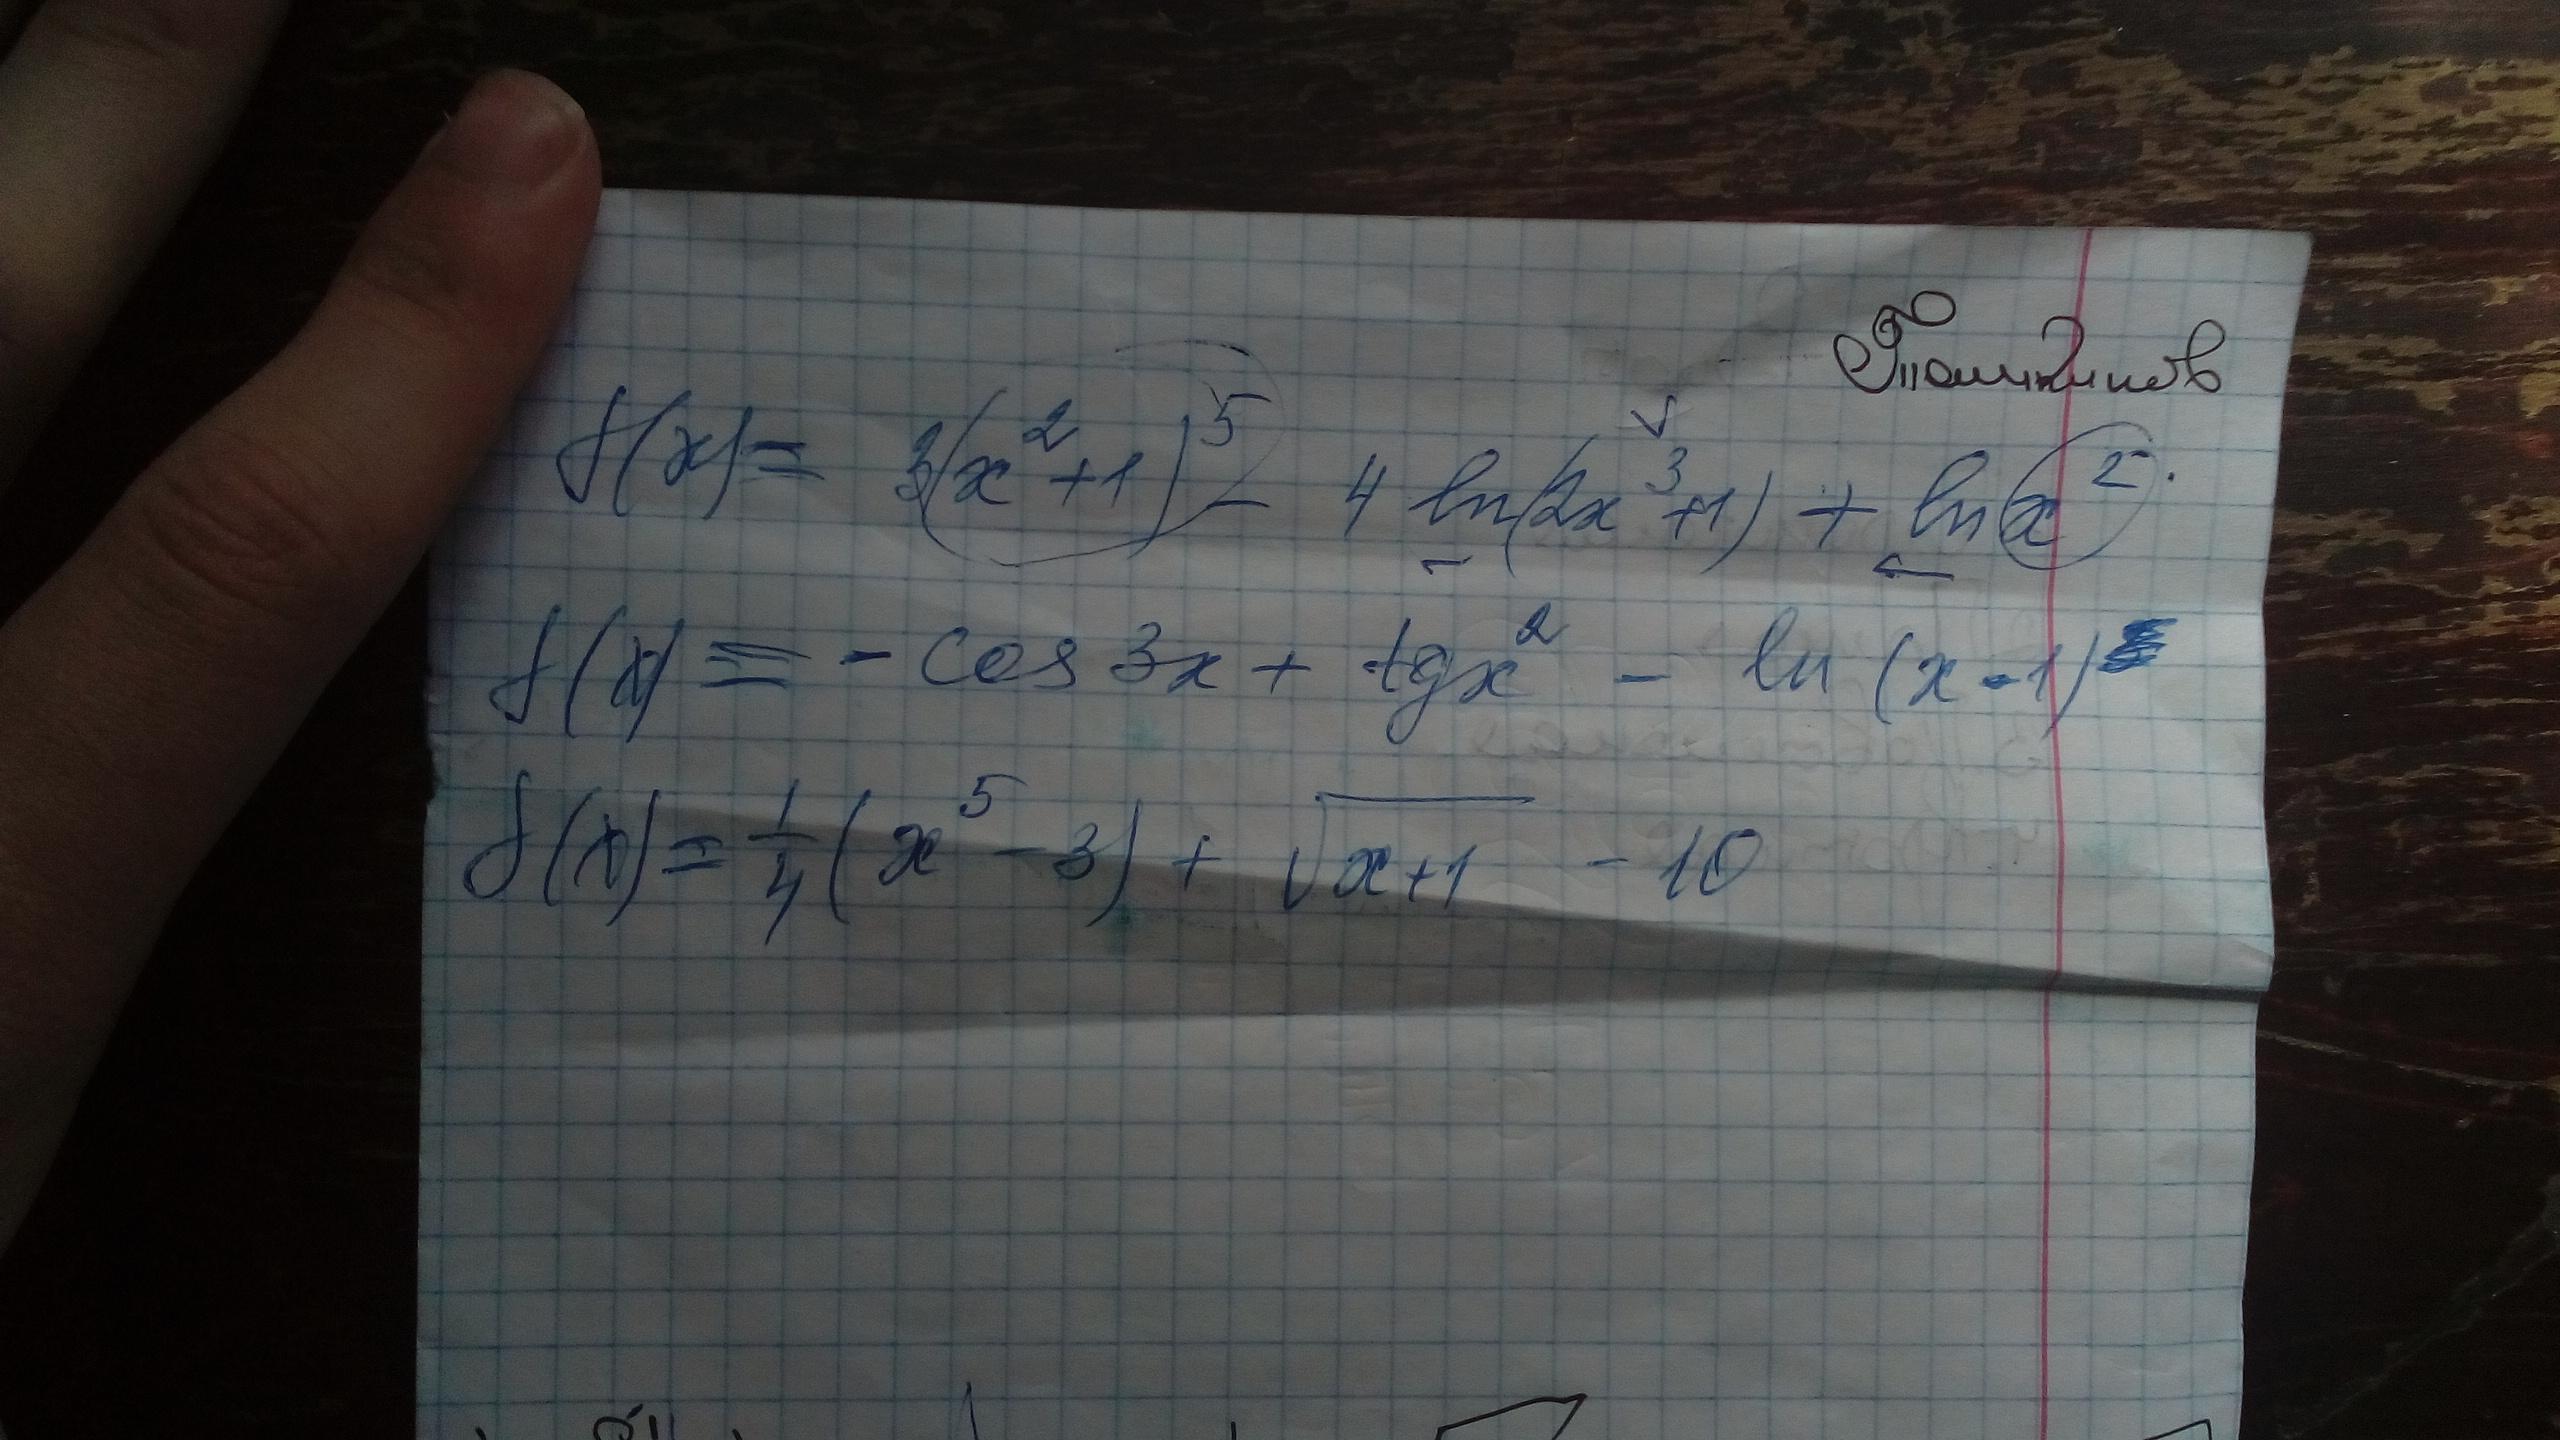 f(x) = 3(x²+1)⁵ - 4 ln(2x³+1) + ln x².
f(x) = - cos 3x + tg x² - ln (x-1)
f(x) = 1/4 (x⁵ - 3) + √(x+1) - 10